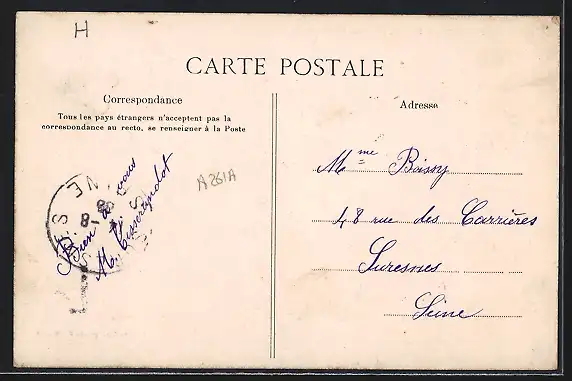 H
CARTE POSTALE
Correspondance
Tous les pays étrangers n'acceptent pas la
correspondance au recto, se renseigner à la Poste
Adresse
A261A
Bien à vous
M.
Mme Boissy
48 rue des Carrières
Suresnes
Seine